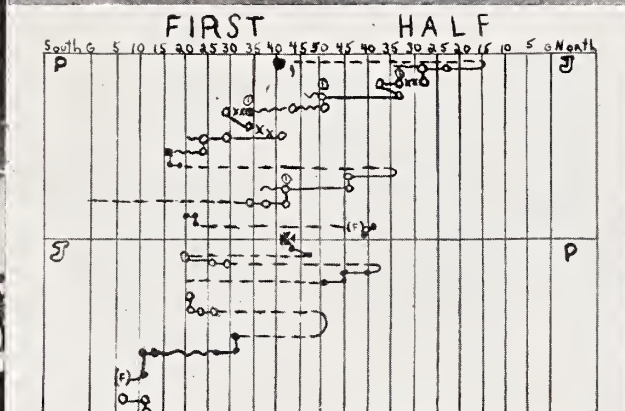 FIRST HALF
South G 5 10 15 20 25 30 35 40 45 50 45 40 35 30 25 20 15 10 5 G North
P J
(F)
J P
(F)